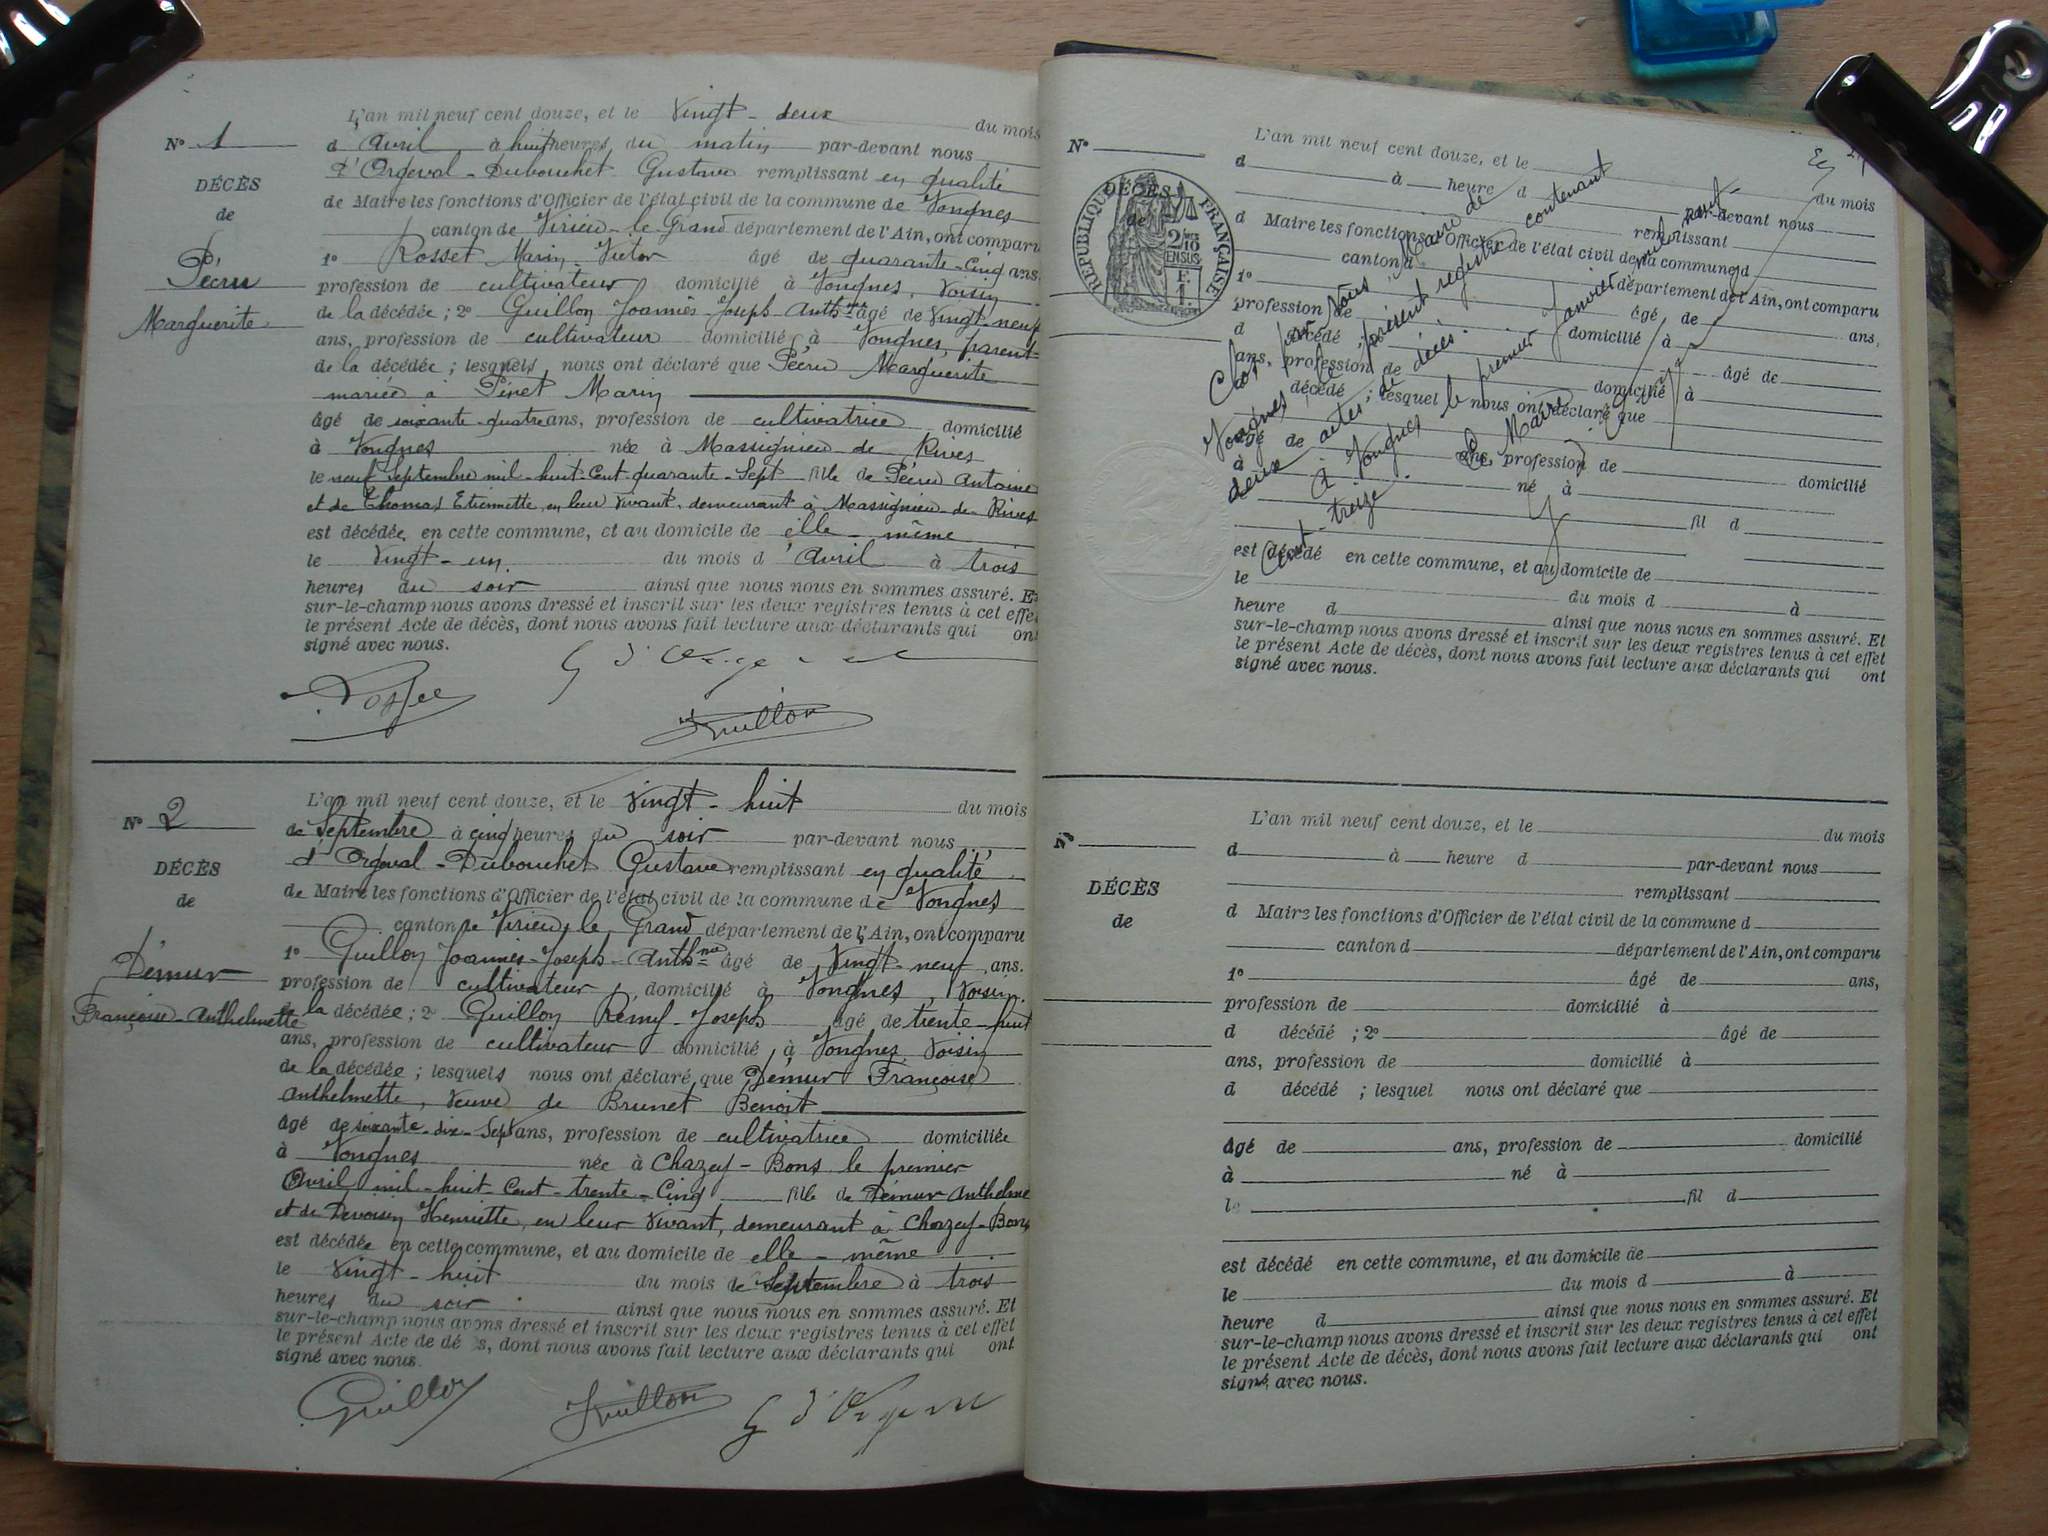 L'an mil neuf cent douze, et le Vingt-deux du mois
N° 1
d avril à huit heures du matin par-devant nous
d'Orgeval-Dubouchet Gustave remplissant en qualité
DÉCÈS
de
de Maire les fonctions d'Officier de l'état civil de la commune de Vongnes
canton de Virieu-le-Grand département de l'Ain, ont comparu
Pécru
Marguerite
1° Rosset Marin-Victor âgé de quarante-cinq ans,
profession de cultivateur domicilié à Vongnes, voisin
de la décédée ; 2° Guillon Joannès-Joseph-Anthme âgé de vingt-neuf
ans, profession de cultivateur domicilié à Vongnes, parent
de la décédée ; lesquels nous ont déclaré que Pécru Marguerite
mariée à Pénet Marin
âgé de soixante-quatre ans, profession de cultivatrice domicilié
à Vongnes née à Massignieu de Rives
le neuf Septembre mil-huit-cent-quarante-sept fille de Pécru Antoine
et de Thomas Etiennette, en leur vivant demeurant à Massignieu-de-Rives
est décédée en cette commune, et au domicile de elle-même
le Vingt-un du mois d'avril à trois
heures du soir ainsi que nous nous en sommes assuré. Et
sur-le-champ nous avons dressé et inscrit sur les deux registres tenus à cet effet
le présent Acte de décès, dont nous avons fait lecture aux déclarants qui ont
signé avec nous.
G d'Orgeval
Rosset
Guillon
L'an mil neuf cent douze, et le Vingt-huit du mois
N° 2
de Septembre à cinq heures du soir par-devant nous
d'Orgeval-Dubouchet Gustave remplissant en qualité
DÉCÈS
de
de Maire les fonctions d'Officier de l'état civil de la commune de Vongnes
canton de Virieu-le-Grand département de l'Ain, ont comparu
Démur
Françoise-Anthelmette
1° Guillon Joannès-Joseph-Anthme âgé de Vingt-neuf ans.
profession de cultivateur, domicilié à Vongnes, Voisin
de la décédée ; 2° Guillon Rémy-Joseph âgé de trente-huit
ans, profession de cultivateur domicilié à Vongnes, Voisin
de la décédée ; lesquels nous ont déclaré que Démur Françoise
Anthelmette, Veuve de Brunet Benoit
âgé de soixante-dix-sept ans, profession de cultivatrice domiciliée
à Vongnes née à Chazey-Bons le premier
Avril mil-huit-cent-trente-cinq fille de Démur Anthelme
et de Devoisin Henriette, en leur vivant, demeurant à Chazey-Bons
est décédée en cette commune, et au domicile de elle-même
le Vingt-huit du mois de Septembre à trois
heures du soir ainsi que nous nous en sommes assuré. Et
sur-le-champ nous avons dressé et inscrit sur les deux registres tenus à cet effet
le présent Acte de décès, dont nous avons fait lecture aux déclarants qui ont
signé avec nous.
Guillon Guillon G d'Orgeval
L'an mil neuf cent douze, et le du mois
N°
d à heure d par-devant nous
remplissant
DÉCÈS
de
RÉPUBLIQUE FRANÇAISE
2/10
EN SUS
1 F
d Maire les fonctions d'Officier de l'état civil de la commune d
canton d département de l'Ain, ont comparu
1° âgé de ans,
profession de domicilié à
d décédé ; âgé de
ans, profession de domicilié à
d décédé ; lesquel nous ont déclaré que
âgé de ans, profession de domicilié
à né à
fil d
est décédé en cette commune, et au domicile de
le du mois d à
heure d ainsi que nous nous en sommes assuré. Et
sur-le-champ nous avons dressé et inscrit sur les deux registres tenus à cet effet
le présent Acte de décès, dont nous avons fait lecture aux déclarants qui ont
signé avec nous.
Clos par Nous, Maire de
Vongnes, le présent registre contenant
deux actes de décès.
à Vongnes le premier Janvier mil neuf
cent-treize.
Le Maire
L'an mil neuf cent douze, et le du mois
N°
d à heure d par-devant nous
remplissant
DÉCÈS
de
d Maire les fonctions d'Officier de l'état civil de la commune d
canton d département de l'Ain, ont comparu
1° âgé de ans,
profession de domicilié à
d décédé ; 2° âgé de
ans, profession de domicilié à
d décédé ; lesquel nous ont déclaré que
Agé de ans, profession de domicilié
à né à
le fil d
est décédé en cette commune, et au domicile de
le du mois d à
heure d ainsi que nous nous en sommes assuré. Et
sur-le-champ nous avons dressé et inscrit sur les deux registres tenus à cet effet
le présent Acte de décès, dont nous avons fait lecture aux déclarants qui ont
signé avec nous.